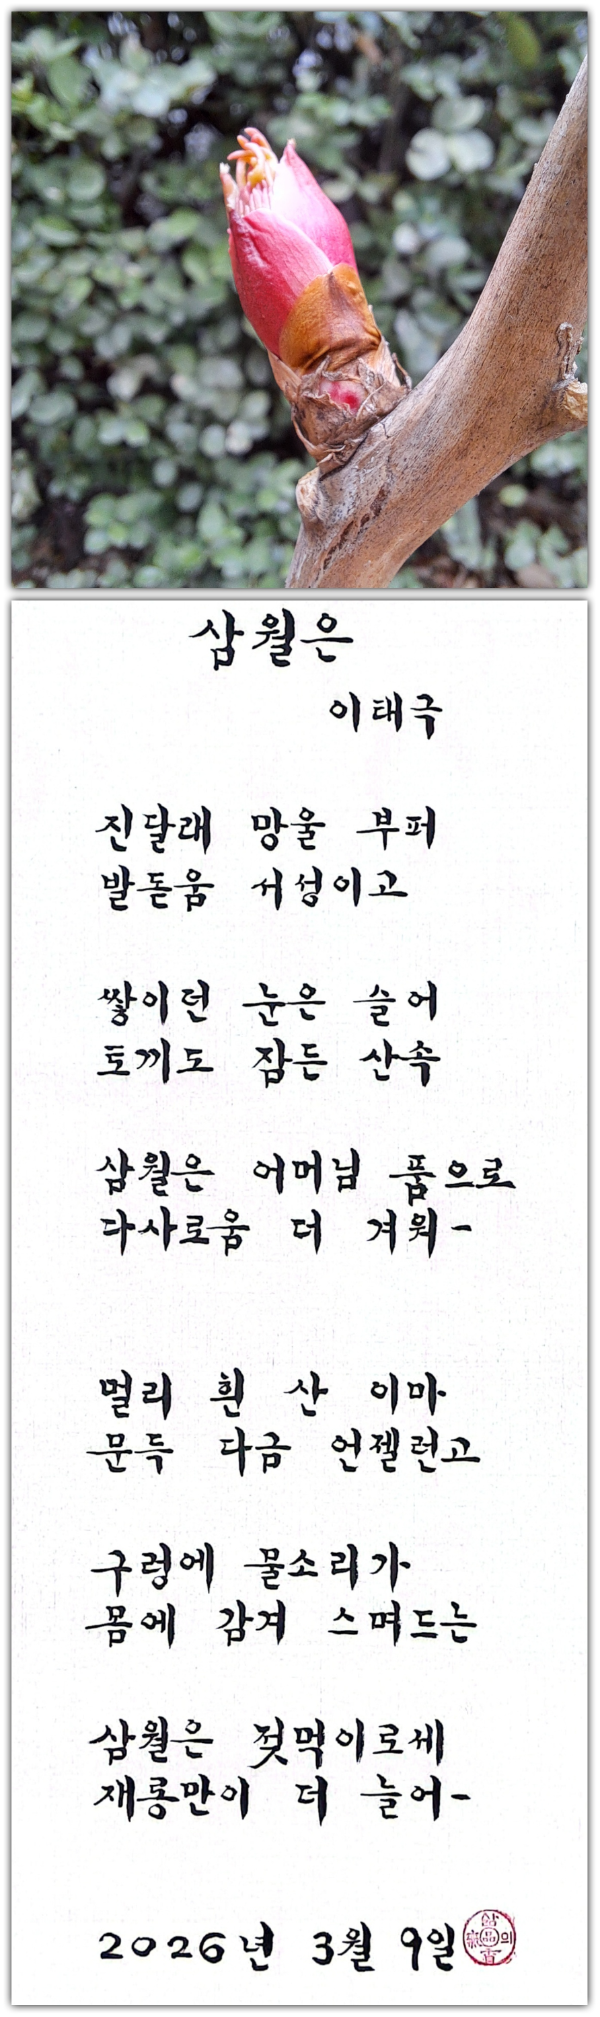 삼월은
이태극
진달래 망울 부퍼
발돋움 서성이고
쌓이던 눈은 슬어
토끼도 잠든 산속
삼월은 어머님 품으로
다사로움 더 겨워-
멀리 흰 산 이마
문득 다금 언젤런고
구렁에 물소리가
몸에 감겨 스며드는
삼월은 젖먹이로세
재롱만이 더 늘어-
2026년 3월 9일